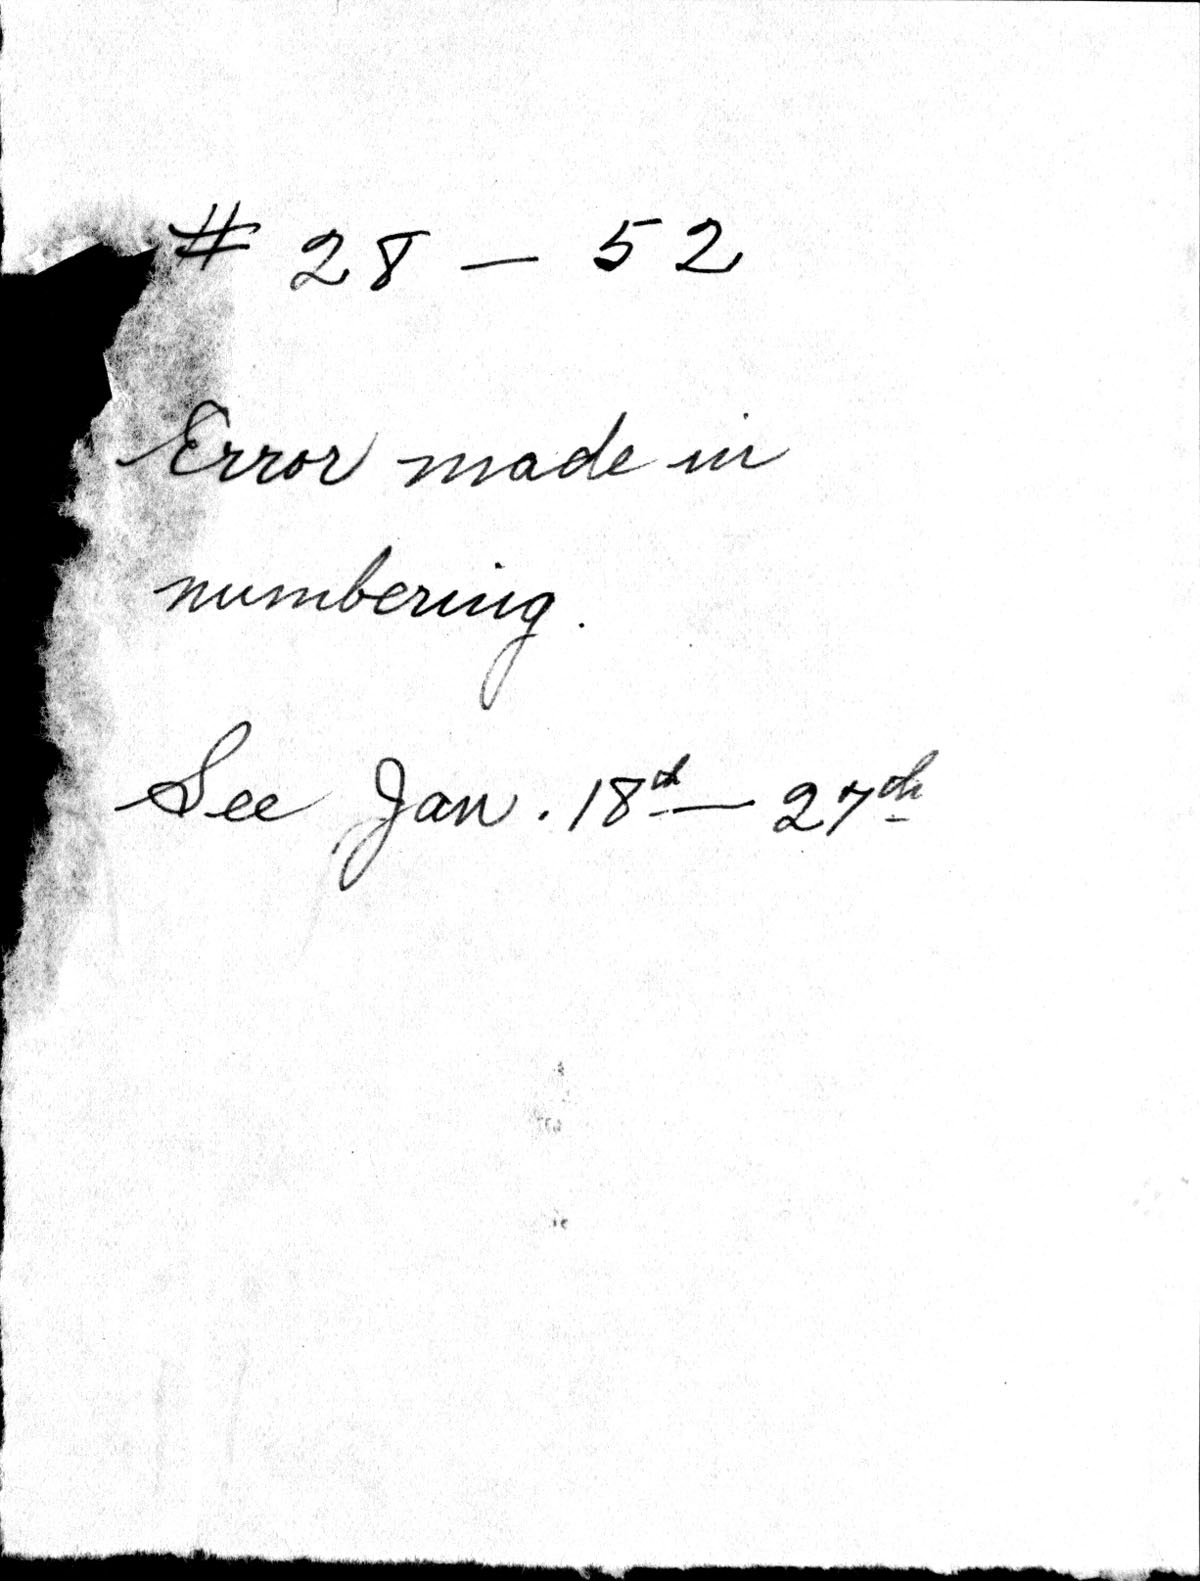 # 28 — 52
Error made in
numbering.
See Jan. 18th — 27th